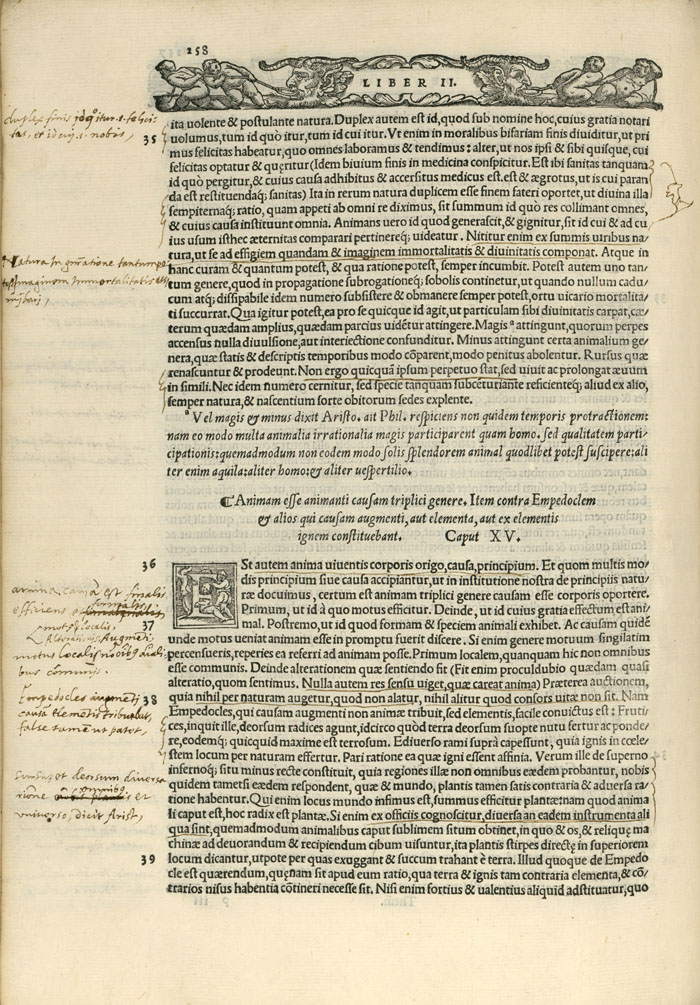 258
LIBER II.
35
ita uolente & postulante natura. Duplex autem est id, quod sub nomine hoc, cuius gratia notari
uolumus, tum id quò itur, tum id cui itur. Vt enim in moralibus bifariam finis diuiditur, ut pri
mus felicitas habeatur, quo omnes laboramus & tendimus: alter, ut nos ipsi & sibi quisque, cui
felicitas optatur & quęritur (Idem biuium finis in medicina conspicitur. Est ibi sanitas tanquam
id quò pergitur, & cuius causa adhibitus & accersitus medicus est, est & ægrotus, ut is cui paran
da est restituendaq; sanitas) Ita in rerum natura duplicem esse finem fateri oportet, ut diuina illa
sempiternaq; ratio, quam appeti ab omni re diximus, sit summum id quò res collimant omnes,
& cuius causa instituunt omnia. Animans uero id quod generascit, & gignitur, sit id cui & ad cu
ius usum isthec æternitas comparari pertinereq; uideatur. Nititur enim ex summis uiribus na/
tura, ut se ad effigiem quandam & imaginem immortalitatis & diuinitatis componat. Atque in
hanc curam & quantum potest, & qua ratione potest, semper incumbit. Potest autem uno tan/
tum genere, quod in propagatione subrogationeq; sobolis continetur, ut quando nullum cadu/
cum atq; dissipabile idem numero subsistere & obmanere semper potest, ortu uicario mortalita/
ti succurrat. Qua igitur potest, ea pro se quicque id agit, ut particulam sibi diuinitatis carpat, cæ/
terum quædam amplius, quædam parcius uidẽtur attingere. Magis ª attingunt, quorum perpes
accensus nulla diuulsione, aut interiectione confunditur. Minus attingunt certa animalium ge/
nera, quæ statis & descriptis temporibus modo cõparent, modo penitus abolentur. Rursus quæ
renascuntur & prodeunt. Non ergo quicquã ipsum perpetuo stat, sed uiuit ac prolongat æuum
in simili. Nec idem numero cernitur, sed specie tanquam subcenturiante reficienteq; aliud ex alio,
semper natura, & nascentium sorte obitorum sedes explente.
ª Vel magis & minus dixit Aristo. ait Phil. respiciens non quidem temporis protractionem:
nam eo modo multa animalia irrationalia magis participarent quam homo. sed qualitatem parti/
cipationis: quemadmodum non eodem modo solis splendorem animal quodlibet potest suscipere: ali
ter enim aquila: aliter homo: & aliter uespertilio.
¶ Animam esse animanti causam triplici genere. Item contra Empedoclem
& alios qui causam augmenti, aut elementa, aut ex elementis
ignem constituebant. Caput XV.
36
ESt autem anima uiuentis corporis origo, causa, principium. Et quom multis mo/
dis principium siue causa accipiantur, ut in institutione nostra de principiis natu/
ræ docuimus, certum est animam triplici genere causam esse corporis oportere.
Primum, ut id à quo motus efficitur. Deinde, ut id cuius gratia effectum est ani/
37
mal. Postremo, ut id quod formam & speciem animali exhibet. Ac causam quidẽ
unde motus ueniat animam esse in promptu fuerit discere. Si enim genere motuum singilatim
percensueris, reperies ea referri ad animam posse. Primum localem, quanquam hic non omnibus
esse communis. Deinde alterationem quæ sentiendo fit (Fit enim proculdubio quædam quasi
alteratio, quom sentimus. Nulla autem res sensu uiget, quæ careat anima) Præterea auctionem,
38
quia nihil per naturam augetur, quod non alatur, nihil alitur quod consors uitæ non sit. Nam
Empedocles, qui causam augmenti non animæ tribuit, sed elementis, facile conuictus est: Fruti/
ces, inquit ille, deorsum radices agunt, idcirco quòd terra deorsum suopte nutu fertur ac ponde/
re, eodemq; quicquid maxime est terrosum. Ediuerso rami suprà capessunt, quia ignis in cœle/
stem locum per naturam effertur. Pari ratione ea quæ igni essent affinia. Verum ille de superno
infernoq; situ minus recte constituit, quia regiones illæ non omnibus eædem probantur, nobis
quidem tametsi eædem respondent, quæ & mundo, plantis tamen satis contraria & aduersa ra/
tione habentur. Qui enim locus mundo infimus est, summus efficitur plantæ: nam quod anima
li caput est, hoc radix est plantæ. Si enim ex officiis cognoscitur, diuersa an eadem instrumenta ali
qua sint, quemadmodum animalibus caput sublimem situm obtinet, in quo & os, & reliquę ma
chinæ ad deuorandum & recipiendum cibum uisuntur, ita plantis stirpes directę in superiorem
39
locum dicantur, utpote per quas exuggant & succum trahant è terra. Illud quoque de Empedo
cle est quærendum, quęnam sit apud eum ratio, qua terra & ignis tam contraria elementa, & cõ/
trarios nisus habentia cõtineri necesse sit. Nisi enim fortius & ualentius aliquid adstituatur, quo